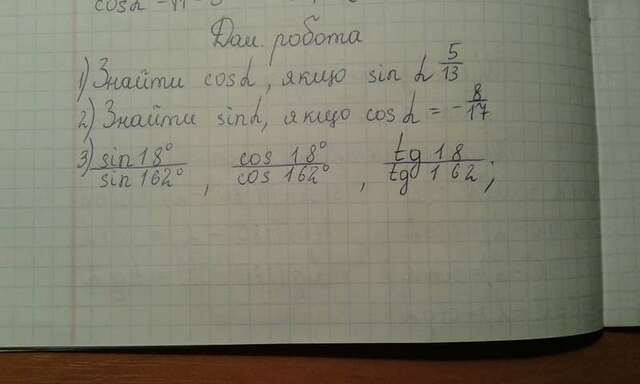 cosα
Дом. робота
1) Знайти cosα, якщо sin α 5/13
2) Знайти sinα, якщо cos α = - 8/17
3) sin 18°/sin 162°, cos 18°/cos 162°, tg 18/tg 162;